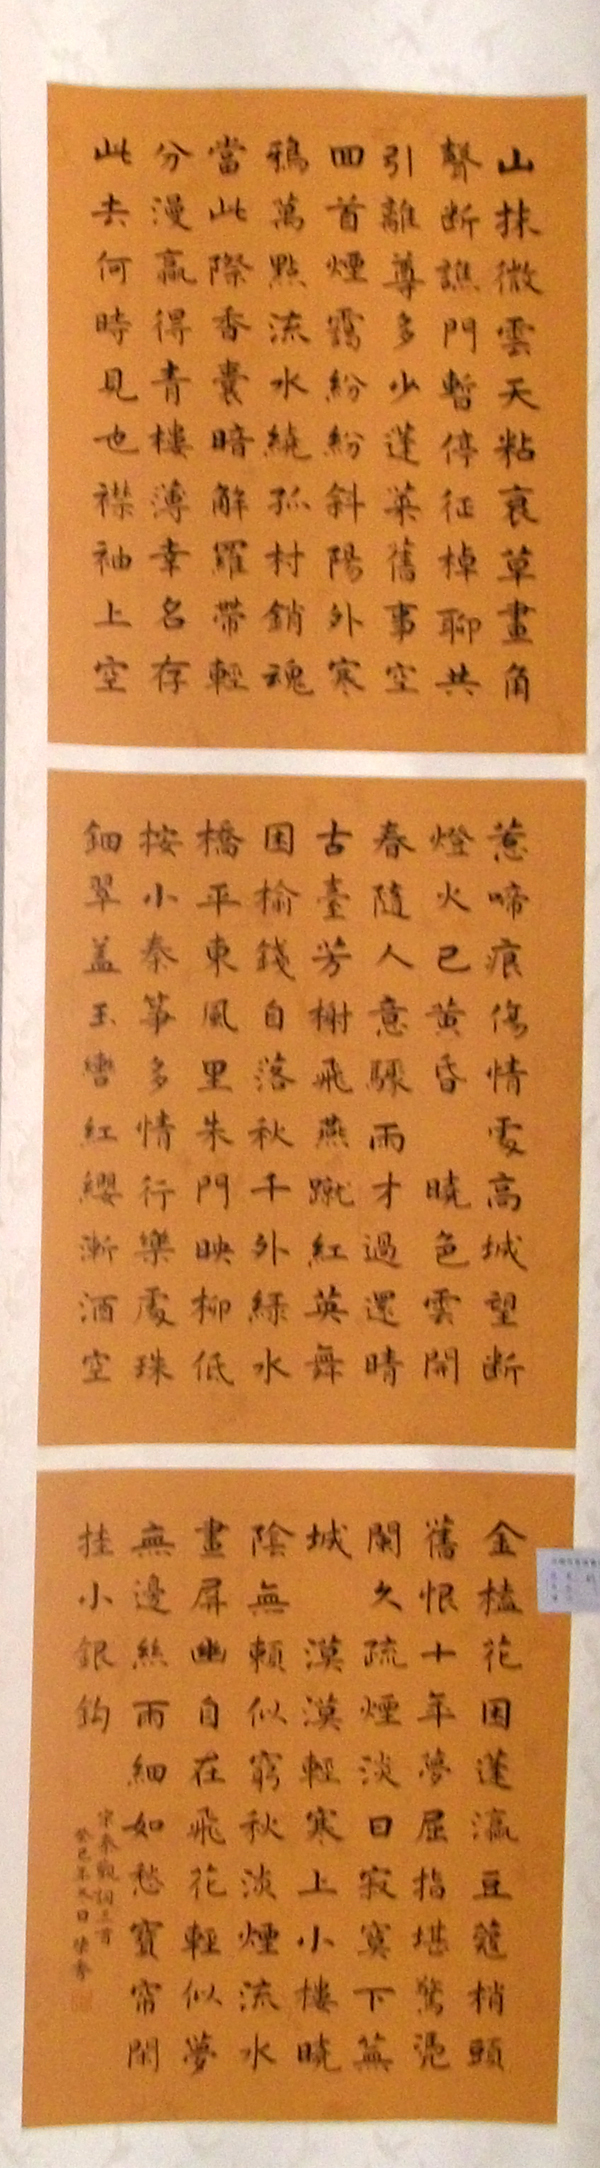 山抹微雲天粘衰草畫角
聲斷譙門暫停征棹聊共
引離尊多少蓬萊舊事空
回首煙靄紛紛斜陽外寒
鴉萬點流水繞孤村銷魂
當此際香囊暗解羅帶輕
分漫贏得青樓薄幸名存
此去何時見也襟袖上空
惹啼痕傷情處高城望斷
燈火已黃昏 曉色雲開
春隨人意驟雨才過還晴
古臺芳榭飛燕蹴紅英舞
困榆錢自落秋千外綠水
橋平東風里朱門映柳低
按小秦箏多情行樂處珠
鈿翠蓋玉轡紅纓漸酒空
金榼花困蓬瀛豆蔻梢頭
舊恨十年夢屈指堪驚憑
闌久疏煙淡日寂寞下蕪
城 漠漠輕寒上小樓曉
陰無賴似窮秋淡煙流水
畫屏幽自在飛花輕似夢
無邊絲雨細如愁寶帘閑
挂小銀鈎
宋秦觀詞三首
癸巳年冬日